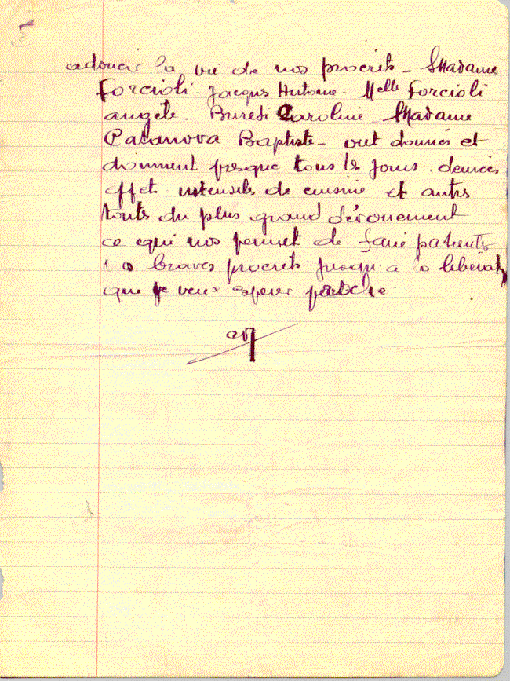 adoucir la vie de nos proscrits - Madame
Forcioli Jacques Antoine. Melle Forcioli
angèle. Caroline Madame
Casanova Baptiste - ont données et
donnent presque tous les jours. denrées
effet ustensils de cuisine et autres
toute du plus grand dévouement
ce equi nos permet de faire patienter
nos braves proscrits jusqu'a la liberat
que je veux esperer proche